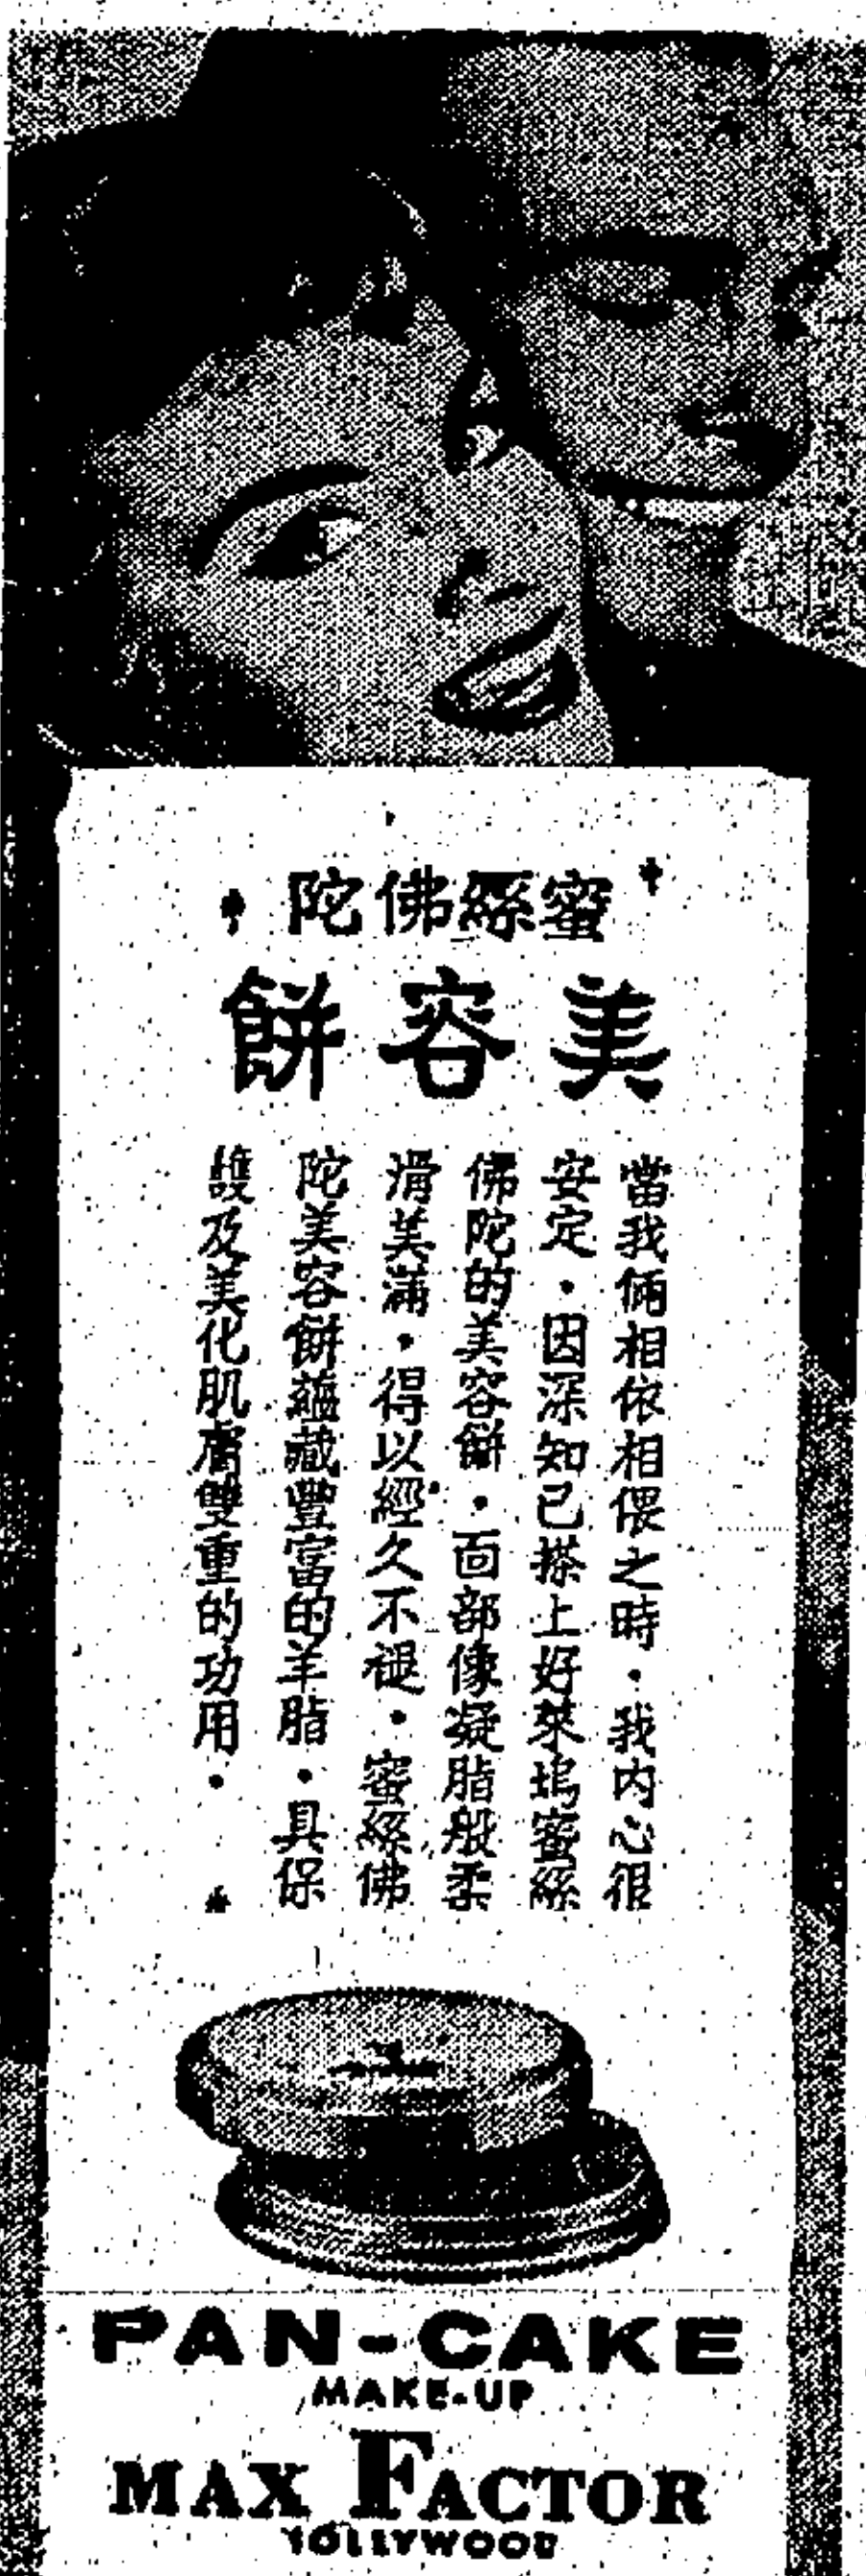 蜜絲佛陀
美容餅
當我倆相依相偎之時・我内心很
安定・因深知已搽上好萊塢蜜絲
佛陀的美容餅・面部像凝脂般柔
滑美滿・得以經久不褪・蜜絲佛
陀美容餅蘊藏豐富的羊脂・具保
護及美化肌膚雙重的功用・
PAN-CAKE
MAKE-UP
MAX FACTOR
HOLLYWOOD